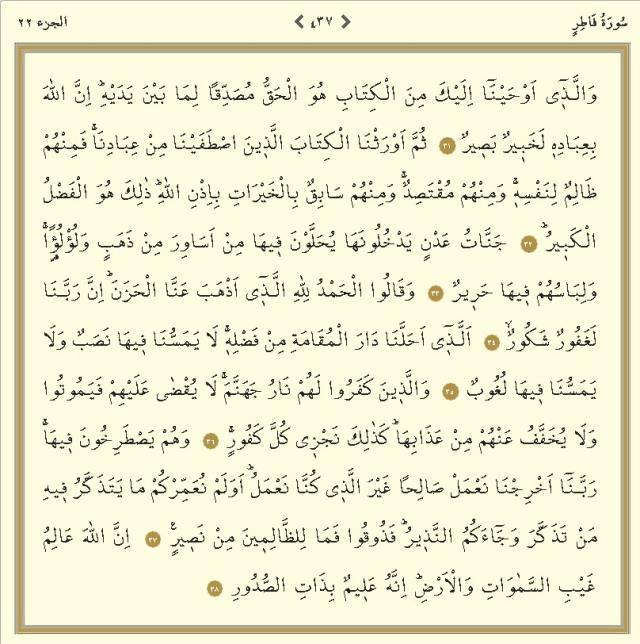 سُورَةُ فَاطِرٍ ٤٣٧ الجزء ٢٢
وَالَّذ۪ٓي اَوْحَيْنَٓا اِلَيْكَ مِنَ الْكِتَابِ هُوَ الْحَقُّ مُصَدِّقًا لِمَا بَيْنَ يَدَيْهِۜ اِنَّ اللّٰهَ
بِعِبَادِه۪ لَخَب۪يرٌ بَص۪يرٌ ٣١ ثُمَّ اَوْرَثْنَا الْكِتَابَ الَّذ۪ينَ اصْطَفَيْنَا مِنْ عِبَادِنَاۚ فَمِنْهُمْ
ظَالِمٌ لِنَفْسِه۪ۚ وَمِنْهُمْ مُقْتَصِدٌۚ وَمِنْهُمْ سَابِقٌ بِالْخَيْرَاتِ بِاِذْنِ اللّٰهِۜ ذٰلِكَ هُوَ الْفَضْلُ
الْكَب۪يرُۜ ٣٢ جَنَّاتُ عَدْنٍ يَدْخُلُونَهَا يُحَلَّوْنَ ف۪يهَا مِنْ اَسَاوِرَ مِنْ ذَهَبٍ وَلُؤْلُؤًاۚ
وَلِبَاسُهُمْ ف۪يهَا حَر۪يرٌ ٣٣ وَقَالُوا الْحَمْدُ لِلّٰهِ الَّذ۪ٓي اَذْهَبَ عَنَّا الْحَزَنَۜ اِنَّ رَبَّنَا
لَغَفُورٌ شَكُورٌۙ ٣٤ اَلَّذ۪ٓي اَحَلَّنَا دَارَ الْمُقَامَةِ مِنْ فَضْلِه۪ۚ لَا يَمَسُّنَا ف۪يهَا نَصَبٌ وَلَا
يَمَسُّنَا ف۪يهَا لُغُوبٌ ٣٥ وَالَّذ۪ينَ كَفَرُوا لَهُمْ نَارُ جَهَنَّمَۚ لَا يُقْضٰى عَلَيْهِمْ فَيَمُوتُوا
وَلَا يُخَفَّفُ عَنْهُمْ مِنْ عَذَابِهَاۜ كَذٰلِكَ نَجْز۪ي كُلَّ كَفُورٍۚ ٣٦ وَهُمْ يَصْطَرِخُونَ ف۪يهَاۚ
رَبَّنَٓا اَخْرِجْنَا نَعْمَلْ صَالِحًا غَيْرَ الَّذ۪ي كُنَّا نَعْمَلُۜ اَوَلَمْ نُعَمِّرْكُمْ مَا يَتَذَكَّرُ ف۪يهِ
مَنْ تَذَكَّرَ وَجَٓاءَكُمُ النَّذ۪يرُۜ فَذُوقُوا فَمَا لِلظَّالِم۪ينَ مِنْ نَص۪يرٍۚ ٣٧ اِنَّ اللّٰهَ عَالِمُ
غَيْبِ السَّمٰوَاتِ وَالْاَرْضِۜ اِنَّهُ عَل۪يمٌ بِذَاتِ الصُّدُورِ ٣٨